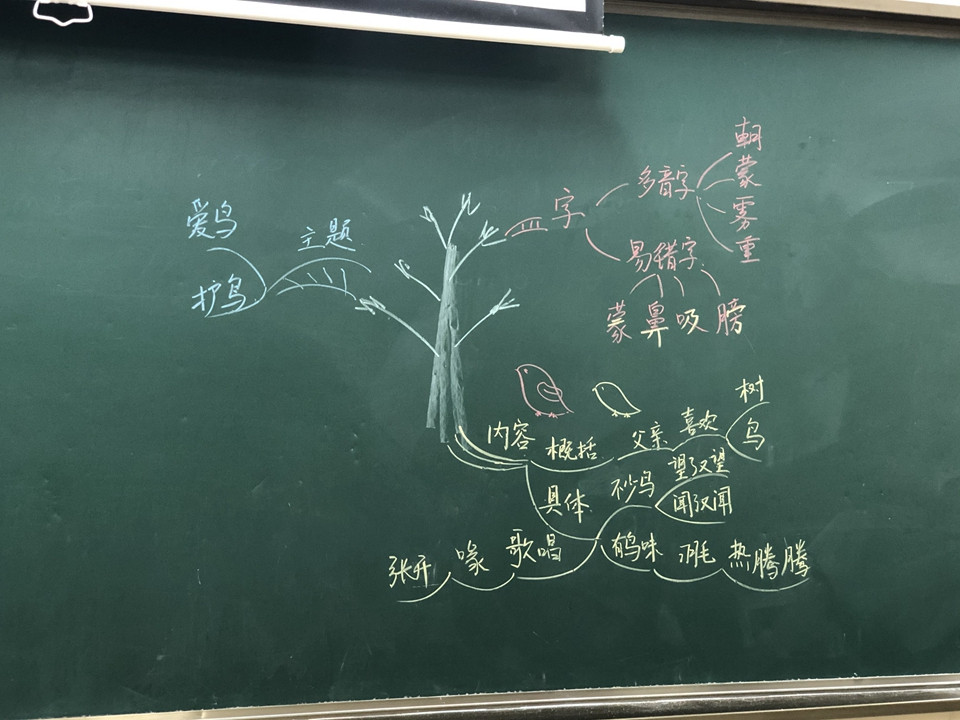 爱鸟
护鸟
主题
字
多音字
朝
蒙
雾
重
易错字
蒙 鼻 吸 膀
内容
概括
父亲
喜欢
树
鸟
具体
不少鸟
望了又望
闻了又闻
有鸟味
羽毛
热腾腾
歌唱
喙
张开